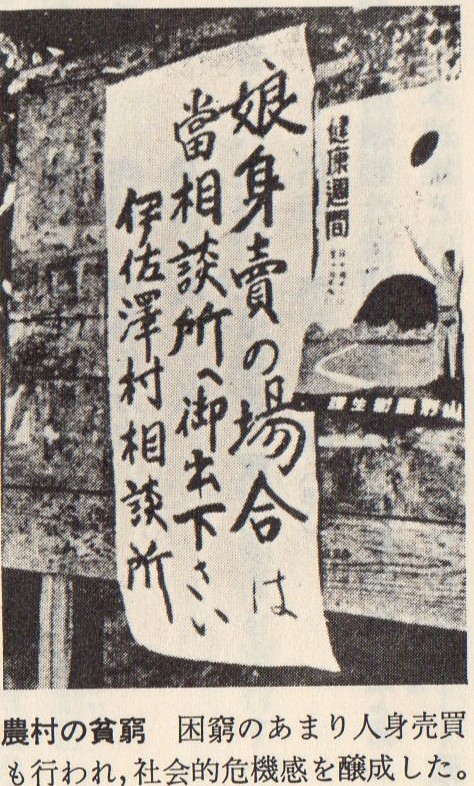 娘身賣の場合は
當相談所へ御出下さい
伊佐澤村相談所
健康週間
農村の貧窮　困窮のあまり人身売買
も行われ,社会的危機感を醸成した。